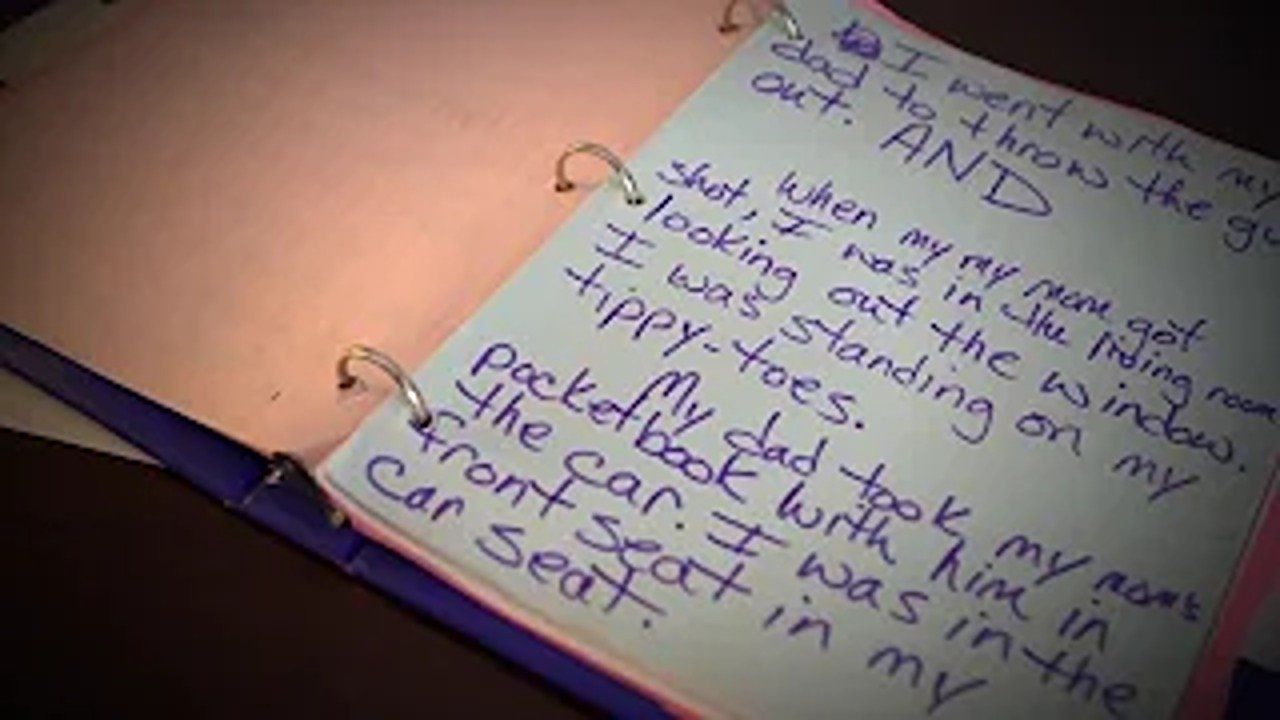 I went with my
dad to throw the
out. AND
When my my mom got
shot, I was in the liding room
looking out the window.
I was standing on my
tippy-toes.
My dad took my moms
pocketbook with him in
the car. I was in the
front seat in my
car seat.